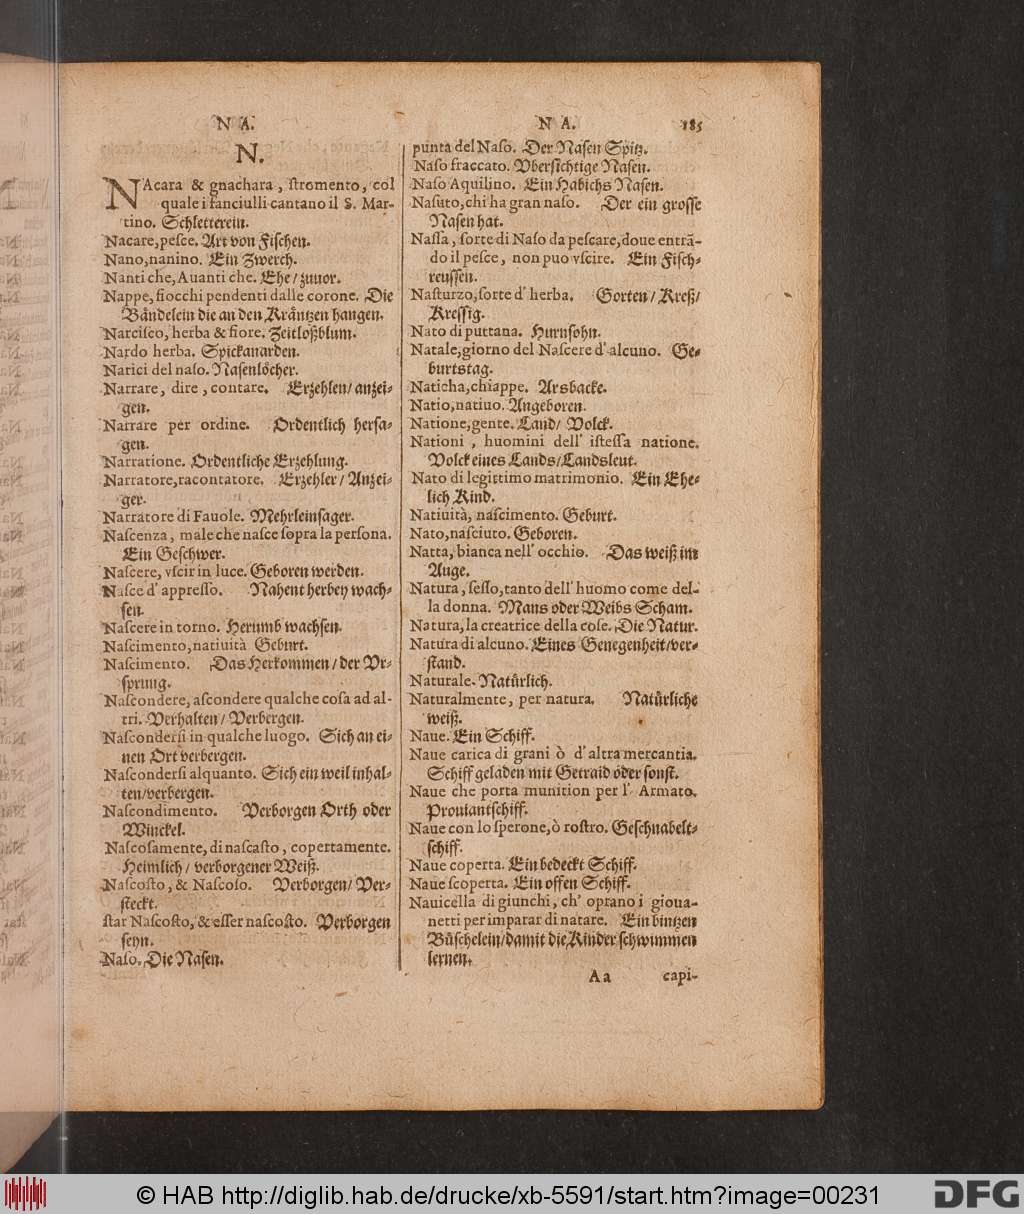 N A.
N.
NAcara & gnachara, ſtromento, col
quale i fanciulli cantano il S. Mar-
tino. Schletterein.
Nacare, peſce. Art von Fiſchen.
Nano, nanino. Ein Zwerch.
Nanti che, Auanti che. Ehe / zuuor.
Nappe, fiocchi pendenti dalle corone. Die
Bändelein die an den Kräntzen hangen.
Narciſco, herba & fiore. Zeitloßblum.
Nardo herba. Spickanarden.
Narici del naſo. Naſenlöcher.
Narrare, dire, contare. Erzehlen / anzei-
gen.
Narrare per ordine. Ordentlich herſa-
gen.
Narratione. Ordentliche Erzehlung.
Narratore, racontatore. Erzehler / Anzei-
ger.
Narratore di Fauole. Mehrleinſager.
Naſcenza, male che naſce ſopra la perſona.
Ein Geſchwer.
Naſcere, vſcir in luce. Geboren werden.
Naſce d' appreſſo. Nahent herbey wach-
ſen.
Naſcere in torno. Herumb wachſen.
Naſcimento, natiuità Geburt.
Naſcimento. Das Herkommen / der Vr-
ſprung.
Naſcondere, aſcondere qualche coſa ad al-
tri. Verhalten / Verbergen.
Naſconderſi in qualche luogo. Sich an ei-
nen Ort verbergen.
Naſconderſi alquanto. Sich ein weil inhal-
ten/verbergen.
Naſcondimento. Verborgen Orth oder
Winckel.
Naſcoſamente, di naſcaſto, copertamente.
Heimlich / verborgener Weiß.
Naſcoſto, & Naſcoſo. Verborgen/ Ver-
ſteckt.
ſtar Naſcoſto, & eſſer naſcoſto. Verborgen
ſeyn.
Naſo. Die Naſen.
N A. 185
punta del Naſo. Der Naſen Spitz.
Naſo fraccato. Vberſichtige Naſen.
Naſo Aquilino. Ein Habichs Naſen.
Naſuto, chi ha gran naſo. Der ein groſſe
Naſen hat.
Naſſa, ſorte di Naſo da peſcare, doue entrã-
do il peſce, non puo vſcire. Ein Fiſch-
reuſſen.
Naſturzo, ſorte d' herba. Gorten / Kreß/
Kreſſig.
Nato di puttana. Hurnſohn.
Natale, giorno del Naſcere d' alcuno. Ge-
burtstag.
Naticha, chiappe. Arsbacke.
Natio, natiuo. Angeboren.
Natione, gente. Land/ Volck.
Nationi, huomini dell' iſteſſa natione.
Volck eines Lands/Landsleut.
Nato di legittimo matrimonio. Ein Ehe-
lich Kind.
Natiuità, naſcimento. Geburt.
Nato, naſciuto. Geboren.
Natta, bianca nell' occhio. Das weiß im
Auge.
Natura, ſeſſo, tanto dell' huomo come del-
la donna. Mans oder Weibs Scham.
Natura, la creatrice della coſe. Die Natur.
Natura di alcuno. Eines Genegenheit/ver-
ſtand.
Naturale. Natürlich.
Naturalmente, per natura. Natürliche
weiß.
Naue. Ein Schiff.
Naue carica di grani ò d' altra mercantia.
Schiff geladen mit Getraid oder ſonſt.
Naue che porta munition per l' Armato.
Prouiantſchiff.
Naue con lo ſperone, ò roſtro. Geſchnabelt-
ſchiff.
Naue coperta. Ein bedeckt Schiff.
Naue ſcoperta. Ein offen Schiff.
Nauicella di giunchi, ch' oprano i gioua-
netti per imparar di natare. Ein bintzen
Büſchelein/damit die Kinder ſchwimmen
lernen.
Aa capi-
© HAB http://diglib.hab.de/drucke/xb-5591/start.htm?image=00231
DFG